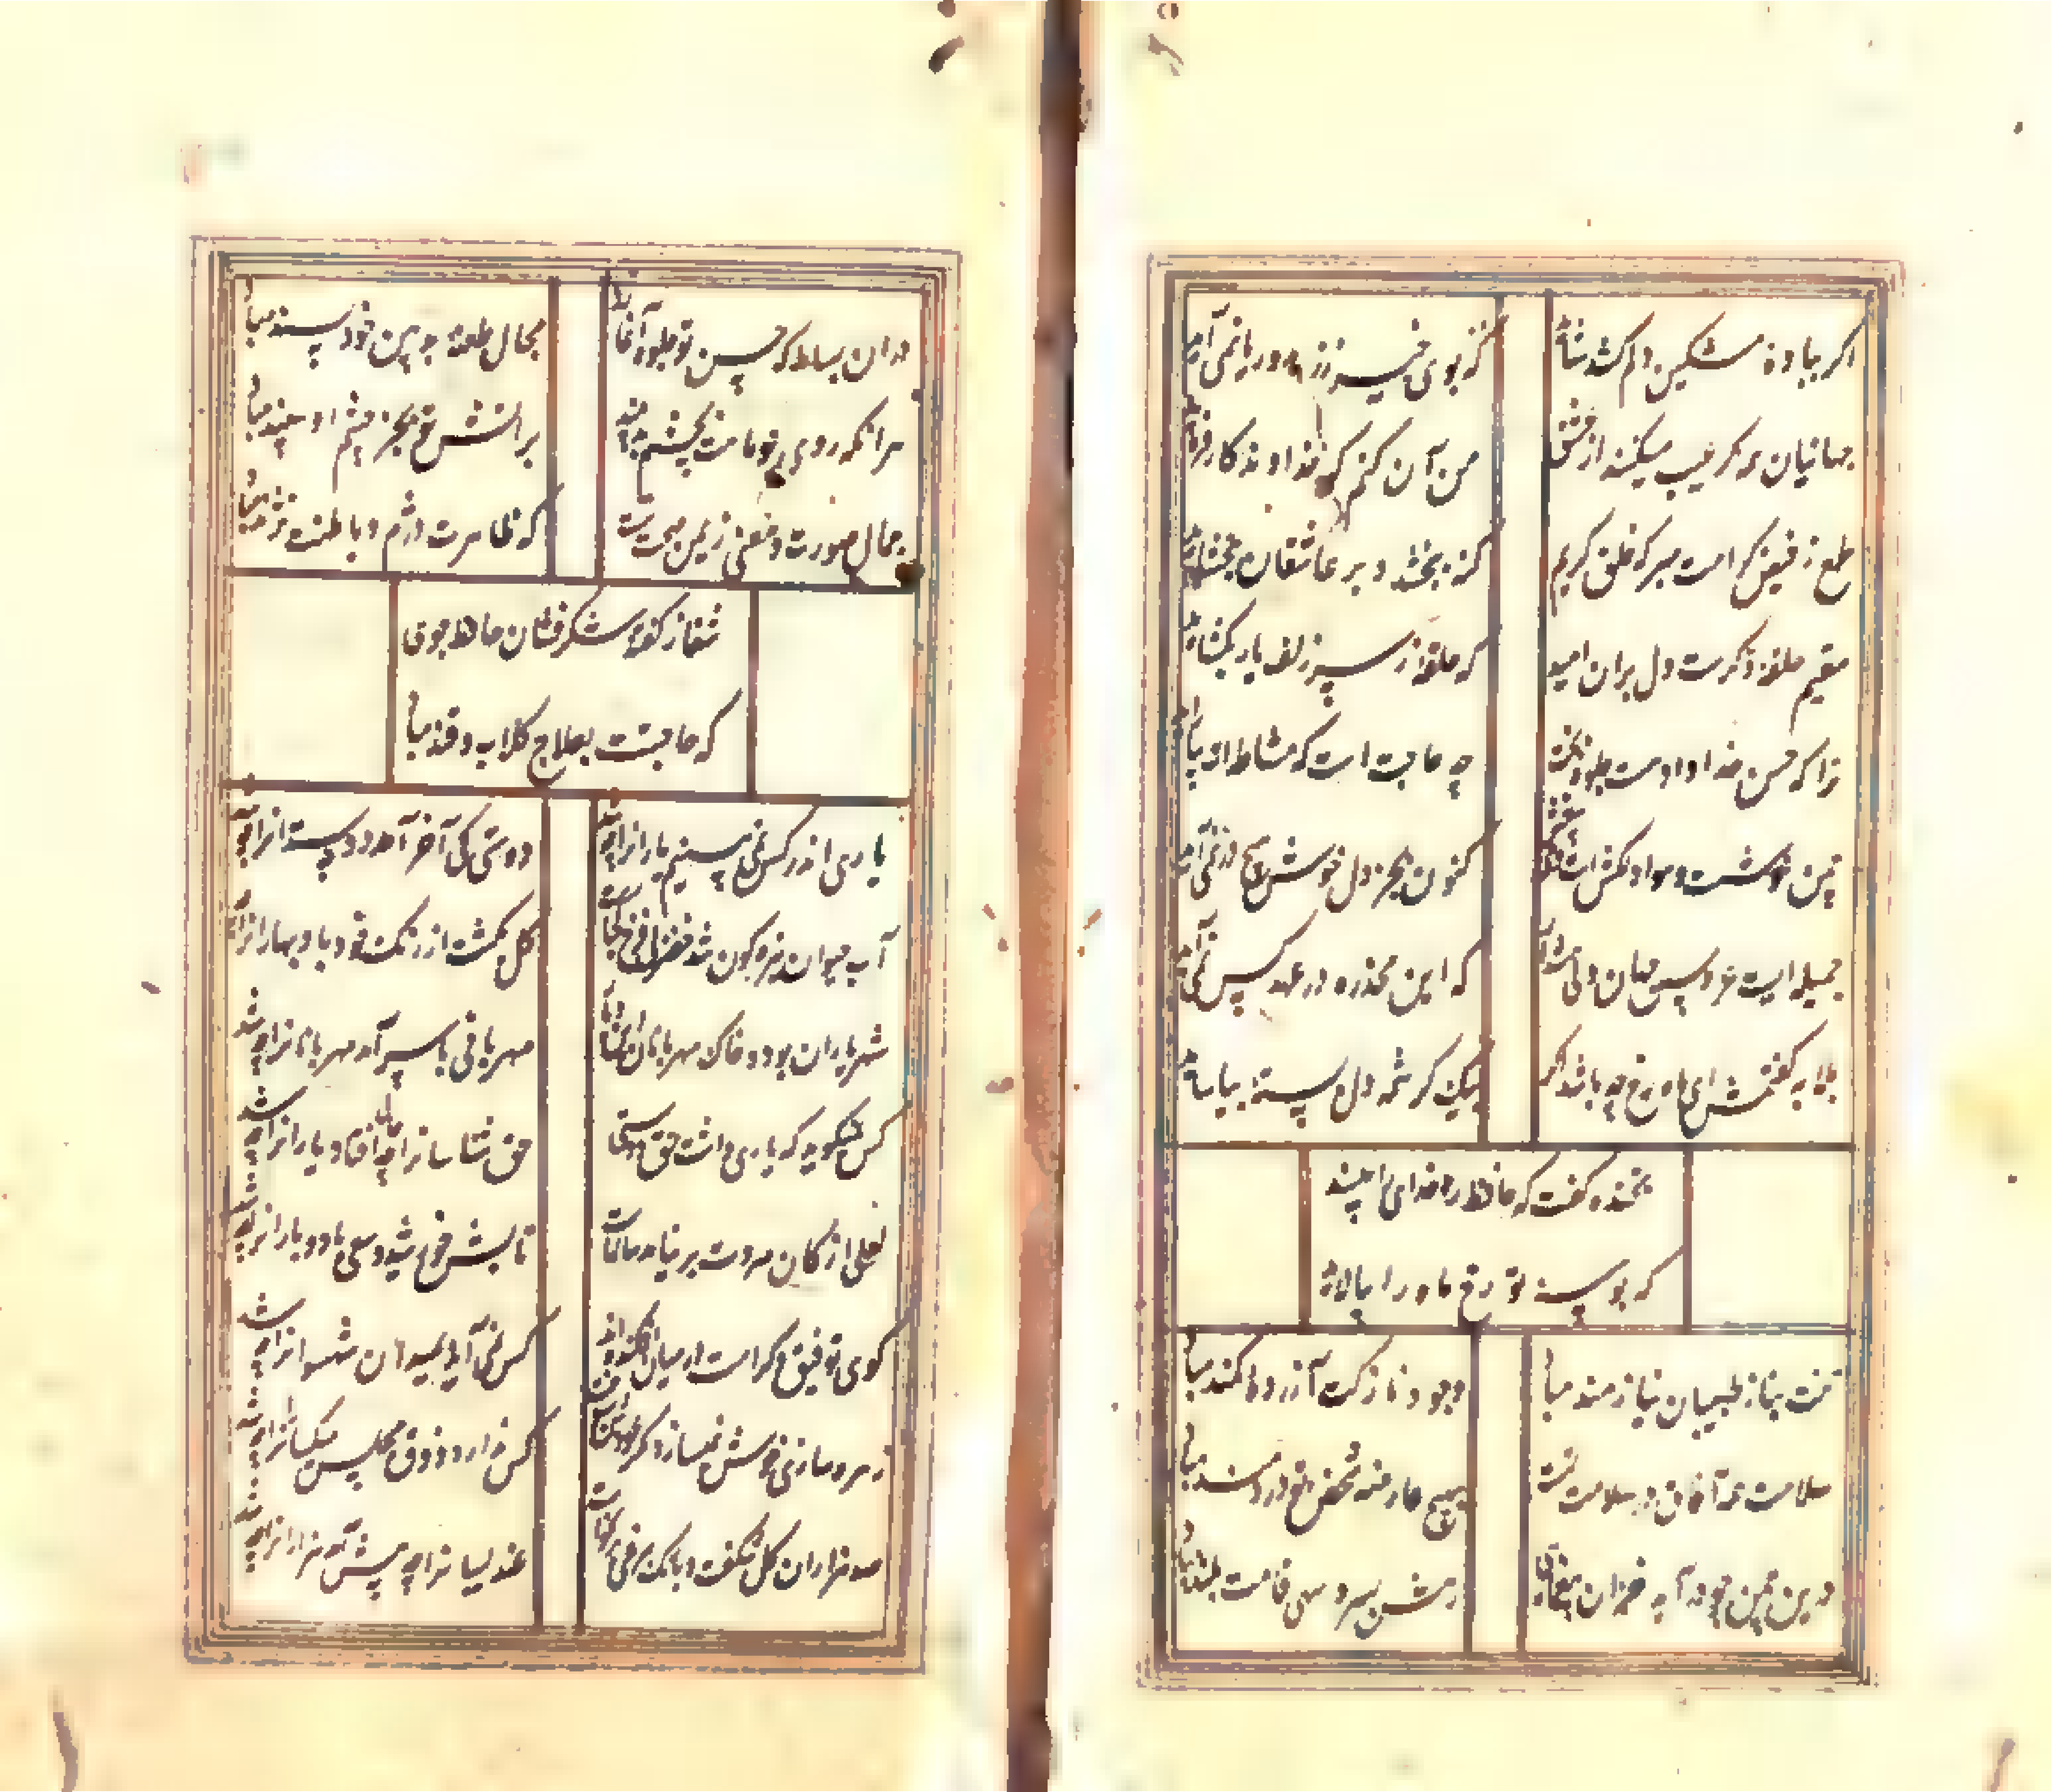 اگر بباده مشکین دلم کشد شاید
که بوی خیر ز زهد و ریا نمی آید
جهانیان همه گر عیب میکنند از عشق
من آن کنم که خداوندگار فرماید
طمع ز فیض کرامت مبر که خلق کریم
گنه ببخشد و بر عاشقان ببخشاید
مقیم حلقه ذکرست دل بران امید
که حلقه از سر زلف یار بگشاید
ترا که حسن خداداد هست و حجله بخت
چه حاجت است که مشاطه ات بیاراید
چمن خوشست و هوا دلکش است
کنون بجز دل خوش هیچ در نمی آید
جمیله ایست عروس جهان ولی هشدار
که این مخدره در عهد کس نمی آید
بلابه گفتمش ای ماه رخ چه باشد اگر
بیک کرشمه دل خسته بیاساید
بخنده گفت که حافظ خدای را مپسند
که بوسه تو رخ ماه را بیالاید
تنت بناز طبیبان نیازمند مباد
وجود نازکت آزرده گزند مباد
سلامت همه آفاق در سلامت تست
بهیچ عارضه شخص تو دردمند مباد
درین چمن چو درآید خزان بیغمایی
رهش بسرو سهی قامت بلند مباد
دران بساط که حسن تو جلوه آغازد
مجال طعنه بدبین خود پسند مباد
هرانکه روی چو ماهت بچشم بد بیند
بر آتش تو بجز چشم او سپند مباد
جمال صورت و معنی ز یمن صحت تست
که ظاهرت دژم و باطنت نژند مباد
شفا ز گفته شکرفشان حافظ جوی
که حاجتت بعلاج گلاب و قند مباد
یاری اندر کس نمی بینیم یارانرا چه شد
دوستی کی آخر آمد دوستدارانرا چه شد
آب حیوان تیره گون شد خضر فرخ پی کجاست
گل بگشت از رنگ خود باد بهارانرا چه شد
شهر یاران بود و خاک مهربانان این دیار
مهربانی کی سر آمد مهربانانرا چه شد
کس نمیگوید که یاری داشت حق دوستی
حق شناسانرا چه حال افتاد یارانرا چه شد
لعلی از کان مروت برنیامد سالهاست
تابش خورشید و سعی باد و بارانرا چه شد
گوی توفیق و کرامت در میان افکنده اند
کس نمی آید بمیدان شهسوارانرا چه شد
زهره سازی خوش نمیسازد مگر عودش بسوخت
کس ندارد ذوق مجلس میگسارانرا چه شد
صد هزاران گل شکفت و بانگ مرغی برنخاست
عندلیبانرا چه پیش آمد هزارانرا چه شد